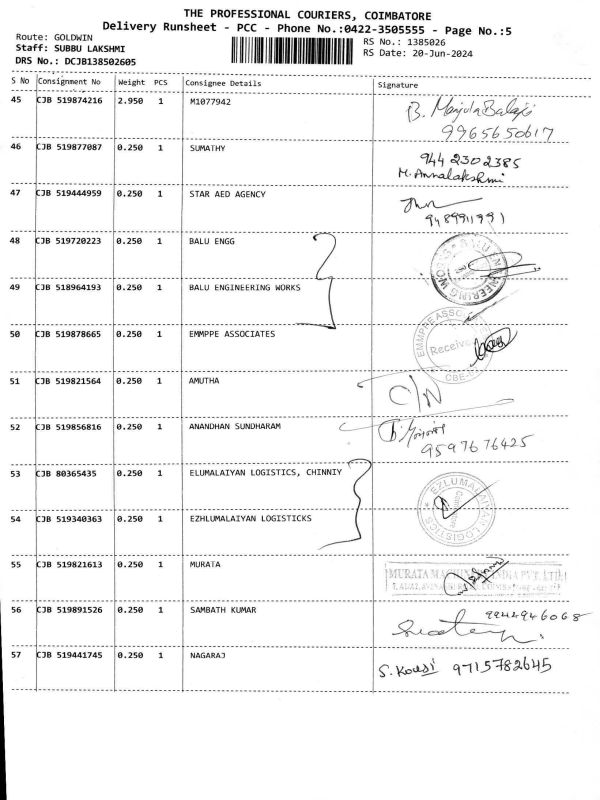 THE PROFESSIONAL COURIERS, COIMBATORE
Delivery Runsheet - PCC - Phone No.:0422-3505555 - Page No.:5
Route: GOLDWIN
Staff: SUBBU LAKSHMI
DRS No.: DCJB138502605
RS No.: 1385026
RS Date: 20-Jun-2024
S No Consignment No Weight PCS Consignee Details Signature
45 CJB 519874216 2.950 1 M1077942 B. Manjula Balaji
9965650617
46 CJB 519877087 0.250 1 SUMATHY 9442302385
M. Annalakshmi
47 CJB 519444959 0.250 1 STAR AED AGENCY
9489911991
48 CJB 519720223 0.250 1 BALU ENGG
BALU ENGINEERING WORKS
49 CJB 518964193 0.250 1 BALU ENGINEERING WORKS
50 CJB 519878665 0.250 1 EMMPPE ASSOCIATES
EMMPPE ASSOC
Received
CBE
51 CJB 519821564 0.250 1 AMUTHA C/N
52 CJB 519856816 0.250 1 ANANDHAN SUNDHARAM
9597676425
53 CJB 80365435 0.250 1 ELUMALAIYAN LOGISTICS, CHINNIY
EZLUMALAIYAN LOGISTICS
54 CJB 519340363 0.250 1 EZHLUMALAIYAN LOGISTICKS
55 CJB 519821613 0.250 1 MURATA
MURATA INDIA PVT. LTD
56 CJB 519891526 0.250 1 SAMBATH KUMAR 9944946068
57 CJB 519441745 0.250 1 NAGARAJ S. Kousi 9715782645